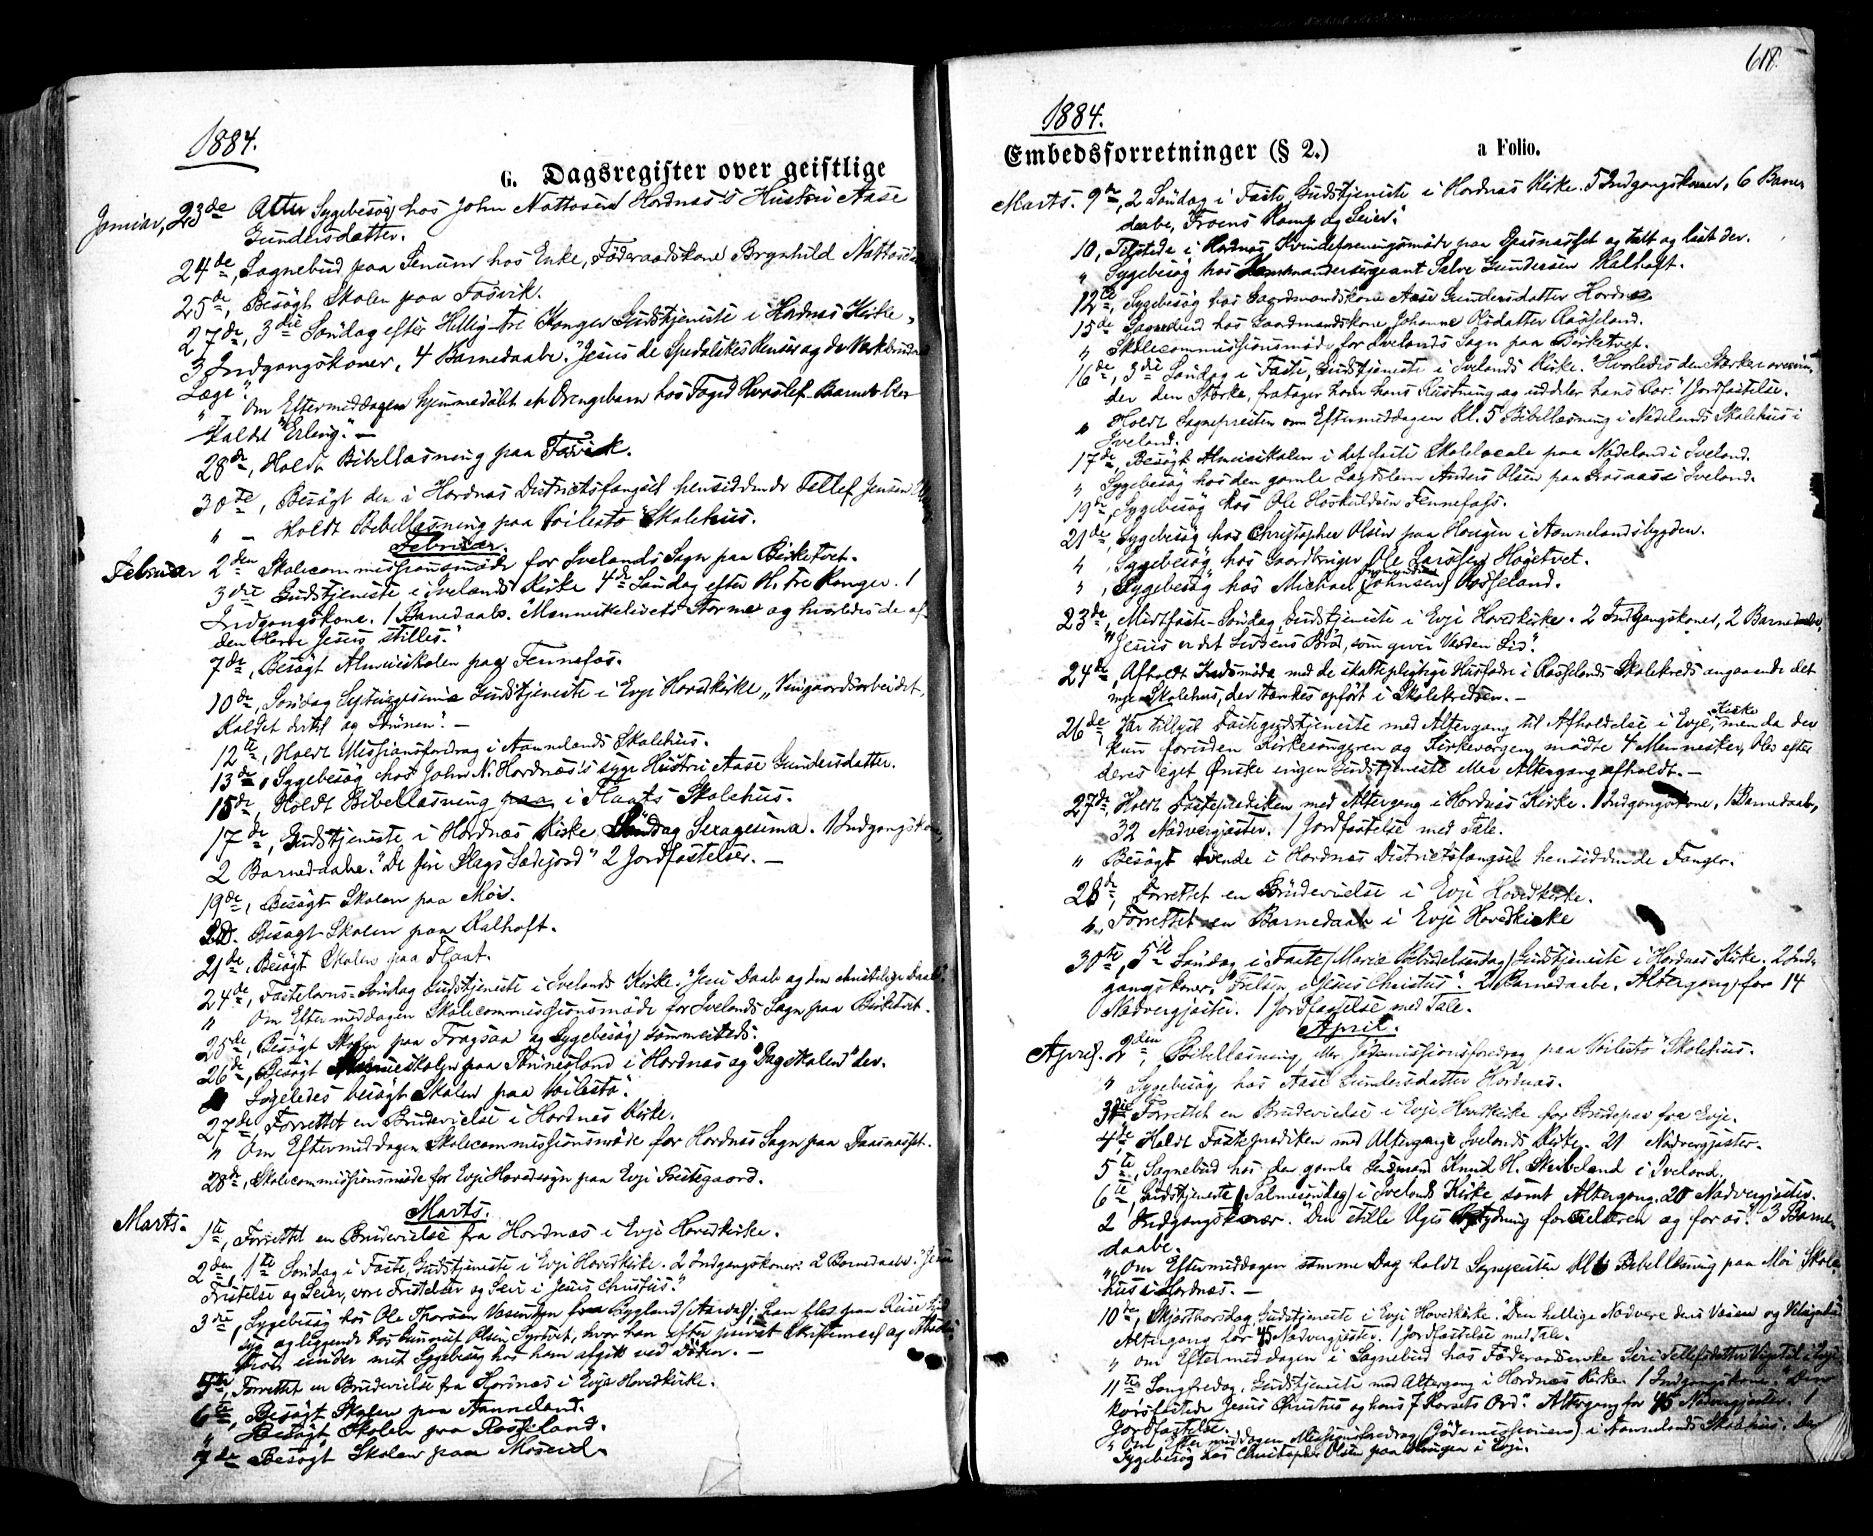 1884.
G. Dagsregister over geistlige
Januar, 23de Atter Sygebesøg hos John Nottosen Hordnæs's Hustru Aase
Gundersdatter.
24de, Sognebud paa Senum hos Enke, Føderaadskone Brynhild Nottosda
25de, Besøgt Skolen paa Fosvik.
27de, 3die Søndag efter Hellig-tre Konger Gudstjeneste i Hordnæs Kirke,
3 Indgangskoner, 4 Barnedaabe. "Jesus de Spedalskes Renser og de Værkbrudnes
Læge".
" – Om Eftermiddagen hjemmedøbt et Drengebarn hos Foged Hvoslef. Barnet blev
kaldt "Erling". –
28de, Holdt Bibellæsning paa Fosvik.
30te, Besøgt den i Hordnæs Districtsfængsel hensiddende Tellef Jensen
" – Holdt Bibellæsning paa Voilestø Skolehus.
Februar.
Februar 2den Skolecommissionsmøde for Ivelands Sogn paa Birketvet.
3die Gudstjeneste i Ivelands Kirke 4de Søndag efter H. tre Konger. 1
Indgangskone. 1 Barnedaab. "Menneskelivets Storme og hvorledes de af
den Herre Jesus stilles."
7de, Besøgt Almueskolen paa Fennefos.
10de, Søndag Septuagesima Gudstjeneste i Evje Hovedkirke "Vingaardsarbeidet,
Kaldet dertil og Lønnen". –
12te, Holdt Missionsforedrag i Aannelands Skolehus.
13de, Sygebesøg hos John N. Hordnæs's syge Hustru Aase Gundersdatter.
15de, Holdt Bibellæsning paa i Flaats Skolehus.
17de, Gudstjeneste i Hordnæs Kirke Søndag Sexagesima. 1 Indgangskone,
2 Barnedaabe. "De fire Slags Sædejord" 2 Jordfæstelser. –
19de, Besøgt Skolen paa Moi.
20. Besøgt Skolen paa Kalhoft.
21de, Besøgt Skolen paa Flaat.
24de, Fastelavns-Søndag Gudstjeneste i Ivelands Kirke. "Jesu Daab og den christelige Daab".
" Om Eftermiddagen Skolecommissionsmøde for Ivelands Sogn paa Birketvet.
25de, Besøgt Skolen paa Frøgsaa og Sygebesøg sammesteds.
26de, Besøgt Almueskolen paa Tønnesland i Hordnæs og "Dagskolen" der.
" Ligeledes besøgt Skolen paa Voilestø.
27de Forrettet en Brudevielse i Hordnæs Kirke.
" Om Eftermiddagen Skolecommissionsmøde for Hordnæs Sogn paa Daasnæset.
28de, Skolecommissionsmøde for Evje Hovedsogn paa Evje Præstegaard.
Marts.
Marts. 1te, Forrettet en Brudevielse fra Hordnæs i Evje Hovedkirke.
2den 1te Søndag i Faste, Gudstjeneste i Evje Hovedkirke. 2 Indgangskoner. 2 Barnedaabe. "Jesu
Fristelse og Seier, vore Fristelser og Seir i Jesus Christus."
3die, Sygebesøg hos Ole Thorsen Vasendyn fra Bygland (Aardal), han blev paa Reise
syg og liggende hos Gunvald Olsen Syrtvet, hvor han efter privat Skriftemaal og
tion under mit Sygebesøg hos ham afgik ved Døden. –
5te, Forrettet en Brudevielse fra Hordnæs i Evje Hovedkirke.
6te, Besøgt Skolen paa Aanneland.
" Besøgt Skolen paa Rosseland.
7de Besøgt Skolen paa Moseid.
618.
1884.
Embedsforretninger (§ 2.) a Folio.
Marts. 9de, 2 Søndag i Faste, Gudstjeneste i Hordnæs Kirke. 5 Indgangskoner, 6 Barne
daabe, "Troens Kamp og Seier".
10, Tilstede i Hordnæs Kvindeforeningsmøde paa Daasnæsset og talt og læst der.
" Sygebesøg hos Kommandersergeant Salve Gundersen Kalhoft.
12te, Sygebesøg hos Gaardmandskone Aase Gundersdatter Hordnæs
15de Sognebud hos Gaardmandskone Johanne Olsdatter Rosseland.
" Skolecommissionsmøde for Ivelands Sogn paa Birketvet.
16de, 3die Søndag i Faste, Gudstjeneste i Ivelands Kirke. "Hvorledes den Stærkere overvin
der den Stærke, fratager ham hans Rustning og uddeler hans Rov." 1 Jordfæstelse.
" Holdt Sognepresten om Eftermiddagen Kl. 5 Bibellæsning i Nødelands Skolehus i
Iveland.
17de, Besøgt Almueskolen i det faste Skolelocale paa Nødeland i Iveland.
" Sygebesøg hos den gamle Lægdslem Anders Olsen paa Frøsaas i Iveland.
19de, Sygebesøg hos Ole Hoskuldsen Fennefoss.
21de, Sygebesøg hos Christopher Olsen paa Haugen i Aannelandsbygden.
" , Sygebesøg hos Gaardbruger Ole Larsen Høgetvet.
" , Sygebesøg hos Michael Johnsen Rosseland.
23de, Midfaste-Søndag, Gudstjeneste i Evje Hovedkirke. 2 Indgangskoner, 2 Barnedaabe,
"Jesus er det Livsens Brød, som giver Verden Liv".
24de, Afholdt Kredsmøde med de skattepligtige Husfædre i Rosselands Skolekreds angaaende det
nye Skolehus, der tænkes opført i Skolekredsen. –
26de, Var tillyst Fastegudstjeneste med Altergang til Afholdelse i Evje Kirke, men da der
kun foruden Kirkesangeren og Kirkeværgen mødte 4 Mennesker, blev efter
deres eget Ønske ingen Gudstjeneste eller Altergang afholdt. –
27de, Holdt Fasteprædiken med Altergang i Hordnæs Kirke. 1 Indgangskone, 1 Barnedaab,
32 Nadvergjæster. 1 Jordfæstelse med Tale.
" Besøgt tvende i Hordnæs Districtsfængsel hensiddende Fanger.
28de, Forrettet en Brudevielse i Evje Hovedkirke.
", Forrettet en Barnedaab i Evje Hovedkirke
30te, 5te Søndag i Faste (Mariæ Bebudelsesdag) Gudstjeneste i Hordnæs Kirke. 2 Ind-
gangskoner. "Frelsen i Jesus Christus". 2 Barnedaabe. Altergang for 14
Nadvergjæster. 1 Jordfæstelse med Tale.
April.
April. 2den, Bibellæsning eller Jødemissionsforedrag paa Voilestø Skolehus.
" Sygebesøg hos Aase Gundersdatter Hordnæs.
3die Forrettet en Brudevielse i Evje Hovedkirke for Brudepar fra Evje.
4de, Holdt Fasteprædiken med Altergang i Ivelands Kirke. 21 Nadvergjæster.
5te, Sognebud hos den gamle Knud H. Skeibeland i Iveland.
6te, Gudstjeneste (Palmesøndag) i Ivelands Kirke samt Altergang. 20 Nadvergjæster.
2 Indgangskoner. "Den stille Uges Betydning for Frelseren og for os". 3 Barne
daabe.
" Om Eftermiddagen samme Dag holdt Sognepresten Kl 6 Bibellæsning paa Moi Skole
hus i Hordnæs. –
10de, Skjærthorsdag, Gudstjeneste i Evje Hovedkirke. "Den hellige Nadvere dens Væsen og Velsignelse"
Altergang for 45 Nadvergjæster. 1 Jordfæstelse med Tale.
" Om Eftermiddagen i Sognebud hos Føderaadsenke Siri Tellefsdatter i Evje.
11te Langfredag, Gudstjeneste med Altergang i Hordnæs Kirke. 1 Indgangskone. "Den
korsfæstede Jesus Christus og hans 7 Korsets Ord". Altergang for 45 Nadvergjæster. 1
Jordfæstelse.
" Om Eftermiddagen Missionsforedrag (Jødemissionen) i Aannelands Skolehus. Der
Sygebesøg hos Christopher Olsen paa Haugen i Evje.